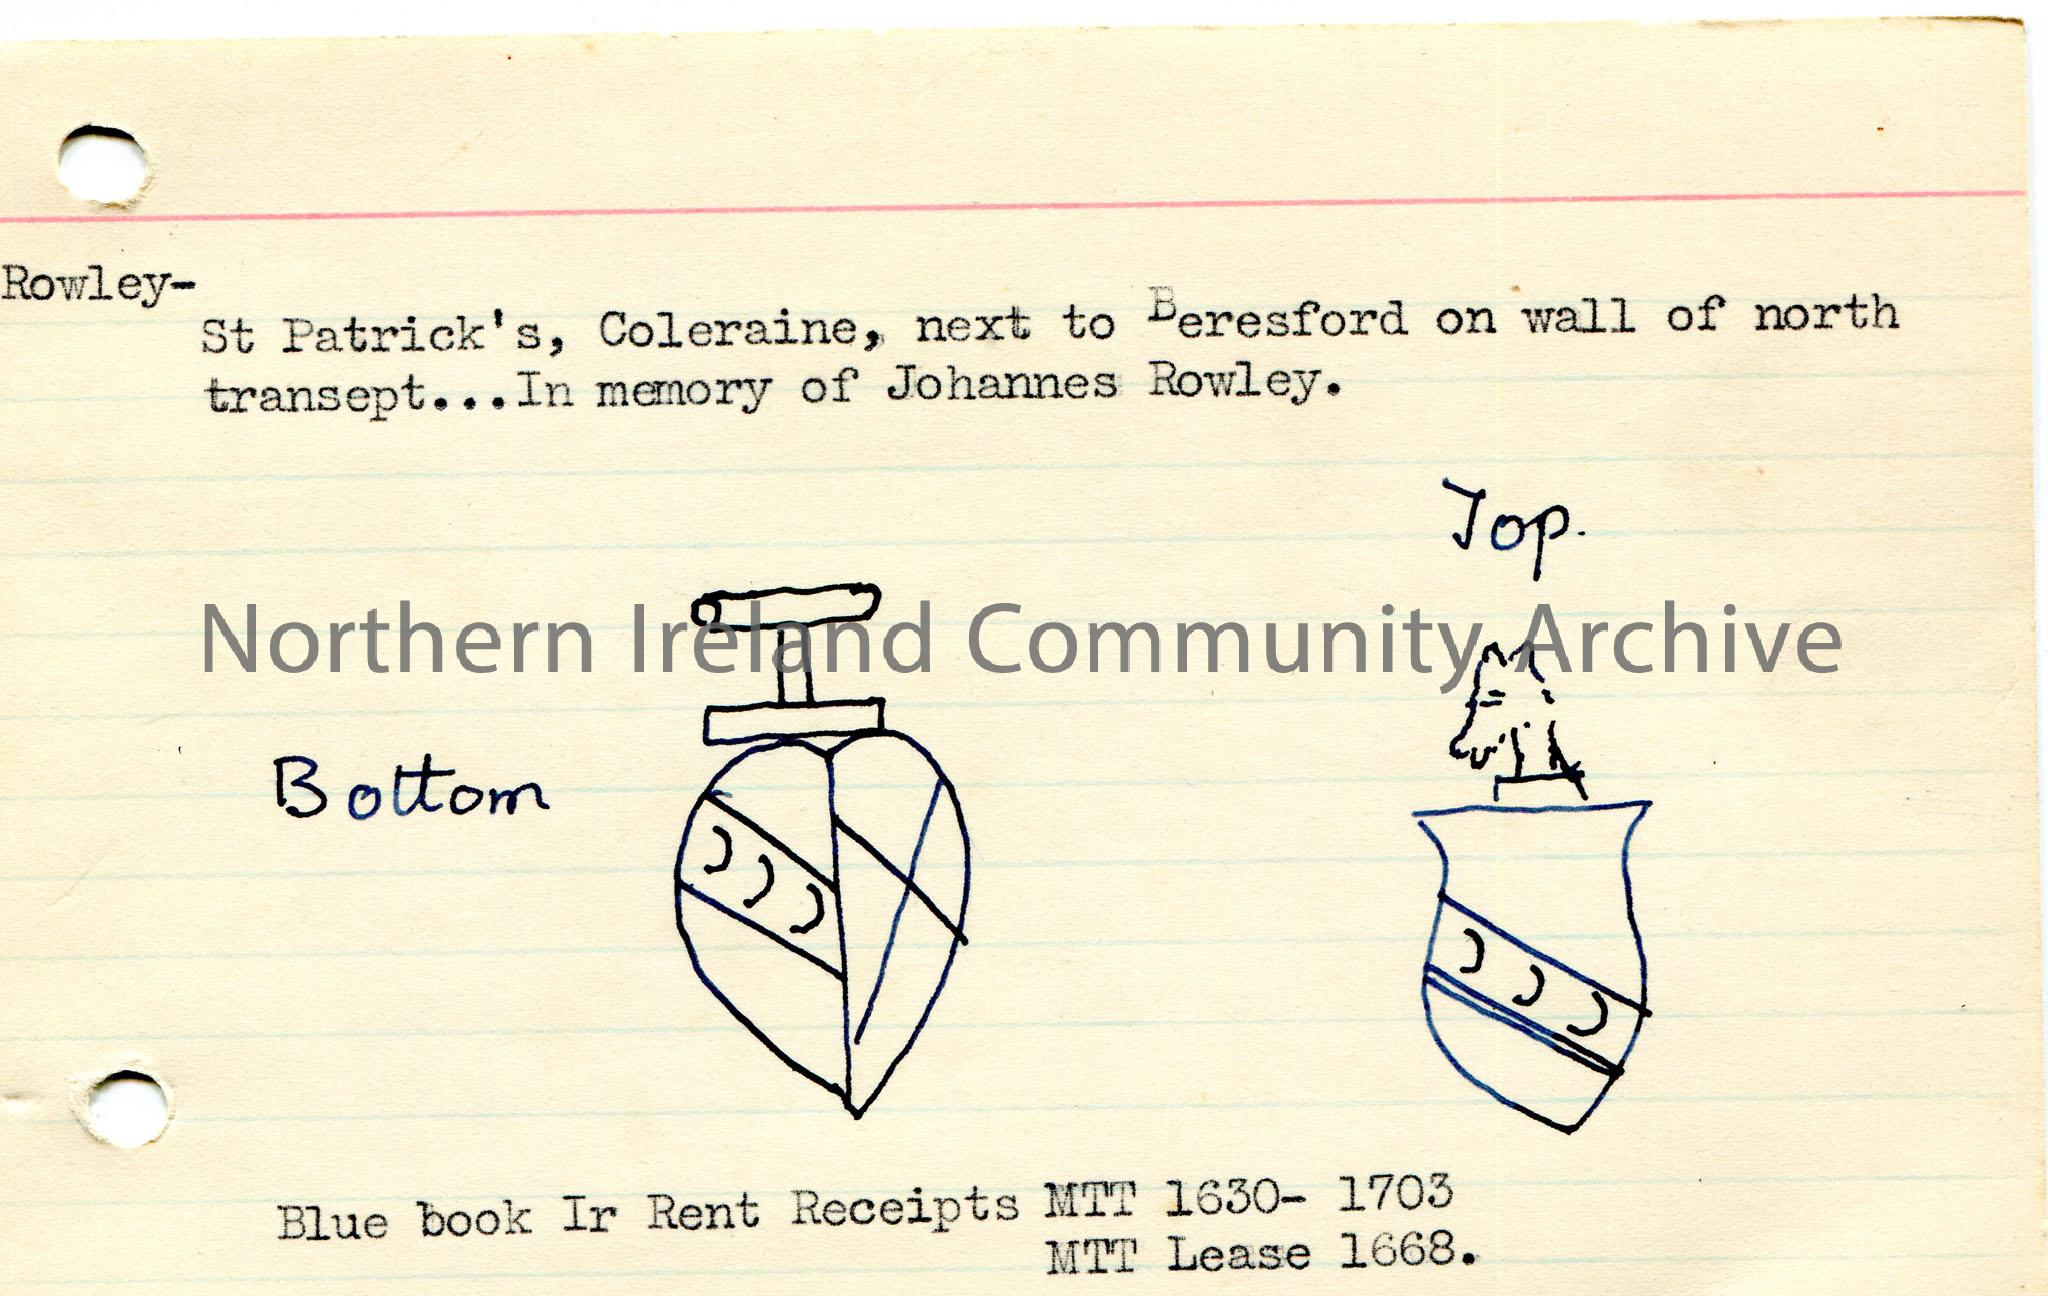 Rowley-
St Patrick's, Coleraine, next to Beresford on wall of north
transept...In memory of Johannes Rowley.
Top.
Northern Ireland Community Archive
Bottom
Blue book Ir Rent Receipts MTT 1630- 1703
MTT Lease 1668.